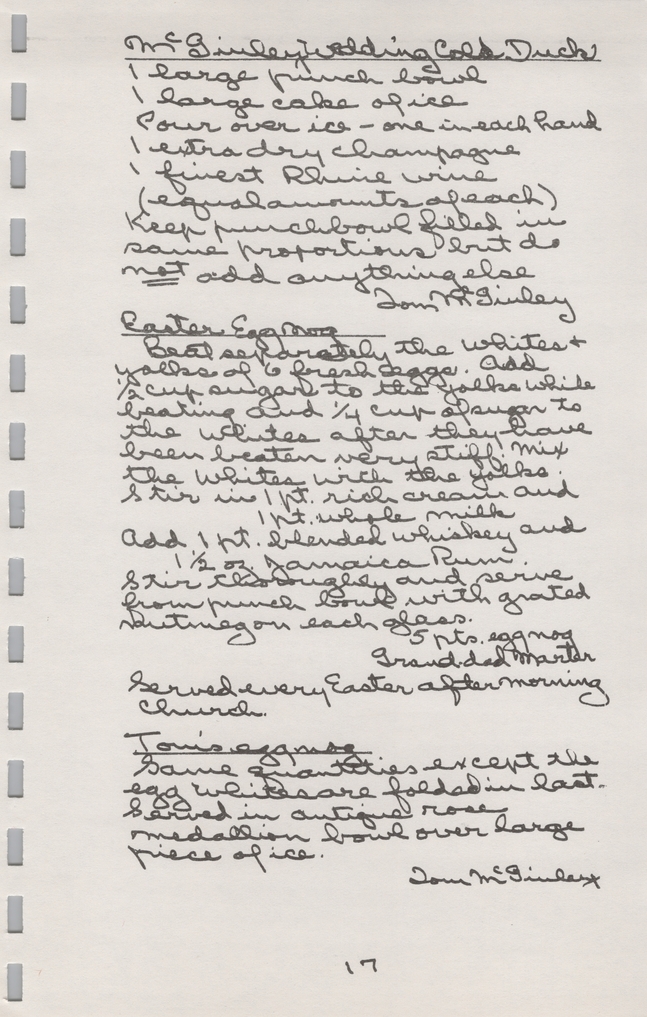 McGinley Wedding Cold Duck
1 large punch bowl
1 large cake of ice
Pour over ice - one in each hand
1 extra dry champagne
1 finest Rhine wine
(equal amounts of each)
Keep punchbowl filled in
same proportions but do
not add anything else
Tom McGinley
Easter Eggnog
Beat separately the whites +
yolks of 6 fresh eggs. Add
1/2 cup sugar to the yolks while
beating and 1/4 cup of sugar to
the whites after they have
been beaten very stiff. Mix
the whites with the yolks.
Stir in 1 pt. rich cream and
1 pt. whole milk
Add 1 pt. blended whiskey and
1 1/2 oz. Jamaica Rum.
Stir thoroughly and serve
from punch bowl with grated
nutmeg on each glass.
5 pts. eggnog
Grand-dad Marter
Served every Easter after morning
church.
Tom's eggnog
Same quantities except the
egg whites are folded in last.
Served in antique rose
medallion bowl over large
piece of ice.
Tom McGinley
17